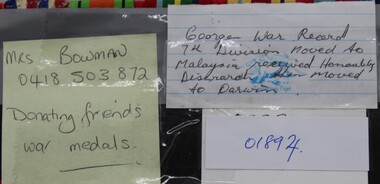 Mrs BOWMAN
0418 503 872
Donating friends
war medals.
George War Record
7th Division moved to
Malaysia received Honourably
Discharch then moved
to Darwin.
01894.